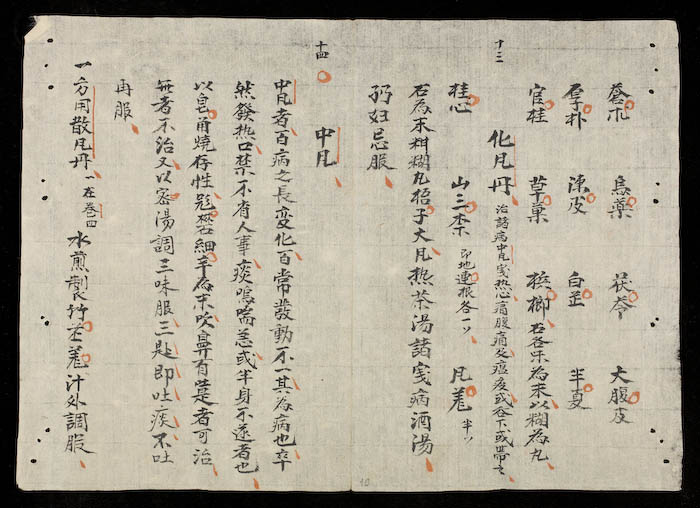 十三
蒼朮 烏藥 茯苓 大腹皮
厚朴 陳皮 白芷 半夏
官桂 草菓 檳榔 右各等為末以糊為丸
化凡丹 治諸病中凡寒熱心痛腹痛及瘟疫或吞下或帶之
桂心 山三柰 即地連根各一 凡姜 半
右為末糊丸梧子大凡熱茶湯諸寔病酒湯
妇忌服
十四
中凡
中凡者百病之長变化百常發動不一其為病也卒
然發热口禁不省人事痰鳴喘急或半身不遂者也
以皂角燒存性細辛為末吹鼻有嚏者可治
無者不治又以密湯調三味服三匙即吐痰不吐
再服
一方用散凡丹 一在卷四 水煎製竹瀝姜汁外調服
10